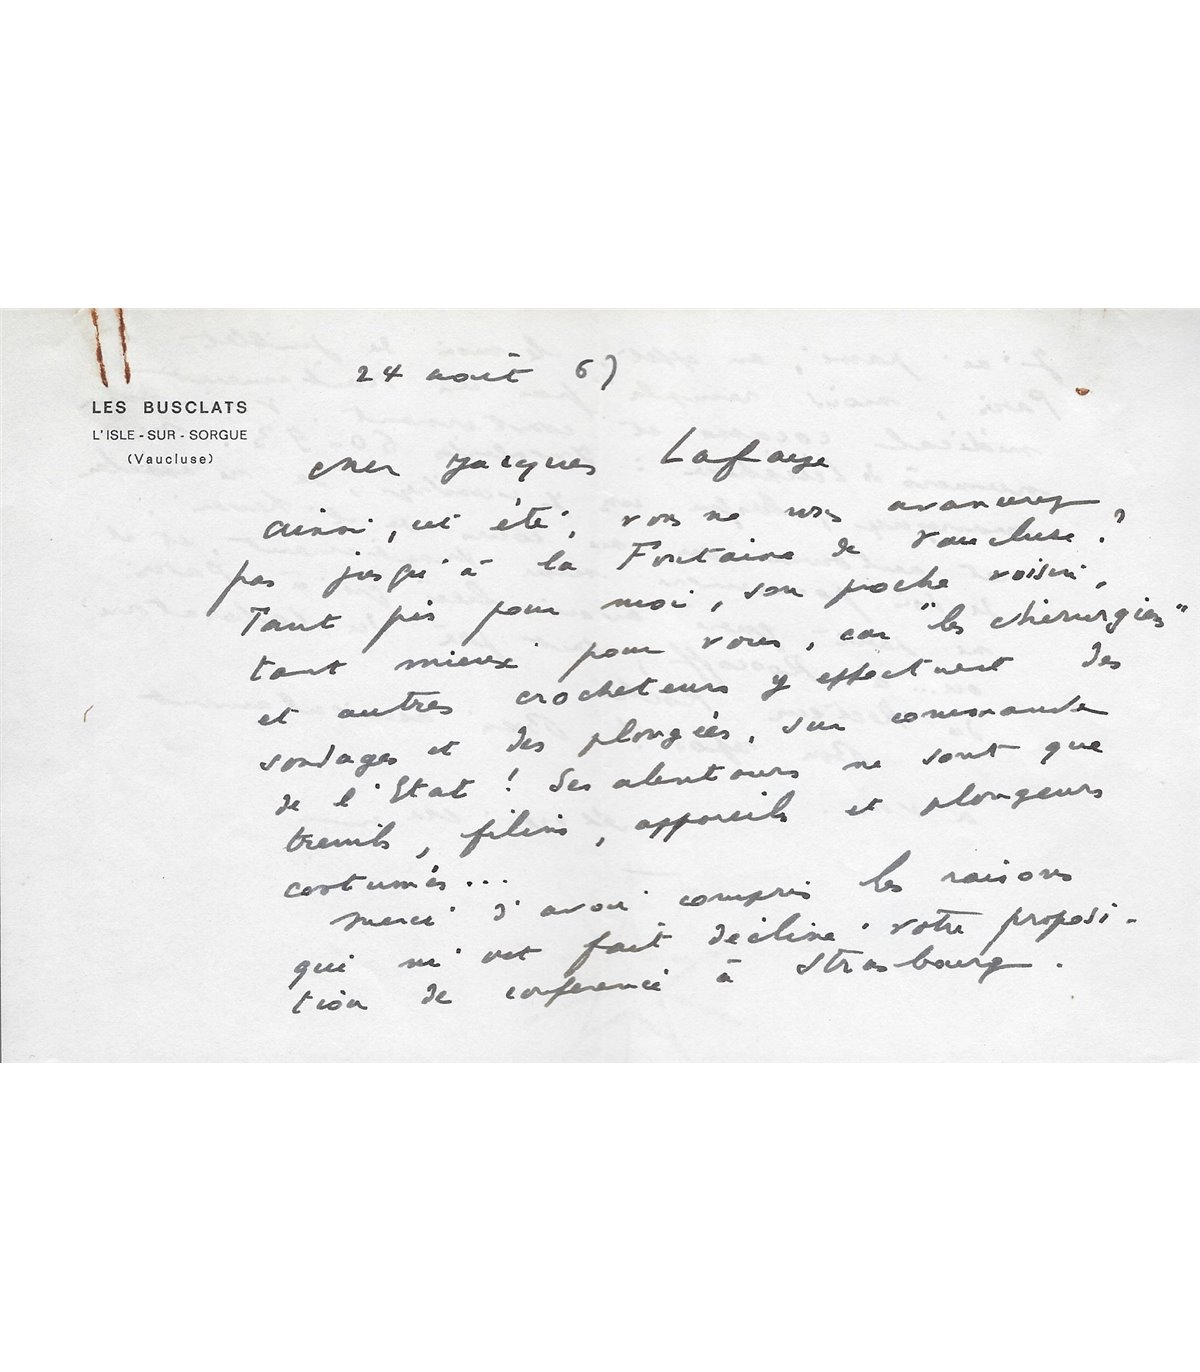 24 août 67
LES BUSCLATS
L'ISLE - SUR - SORGUE
(Vaucluse)
Cher Jacques Lafaye
Ainsi, cet été, vous ne vous avancerez
pas jusqu'à la Fontaine de Vaucluse ?
Tant pis pour moi, son proche voisin,
tant mieux pour vous, car "les chirurgiens"
et autres crocheteurs y effectuent des
sondages et des plongées, sur commande
de l'Etat ! Ses alentours ne sont que
treuils, filins, appareils et plongeurs
costumés...
Merci d'avoir compris les raisons
qui m'ont fait décliner votre proposi-
tion de conférence à Strasbourg.